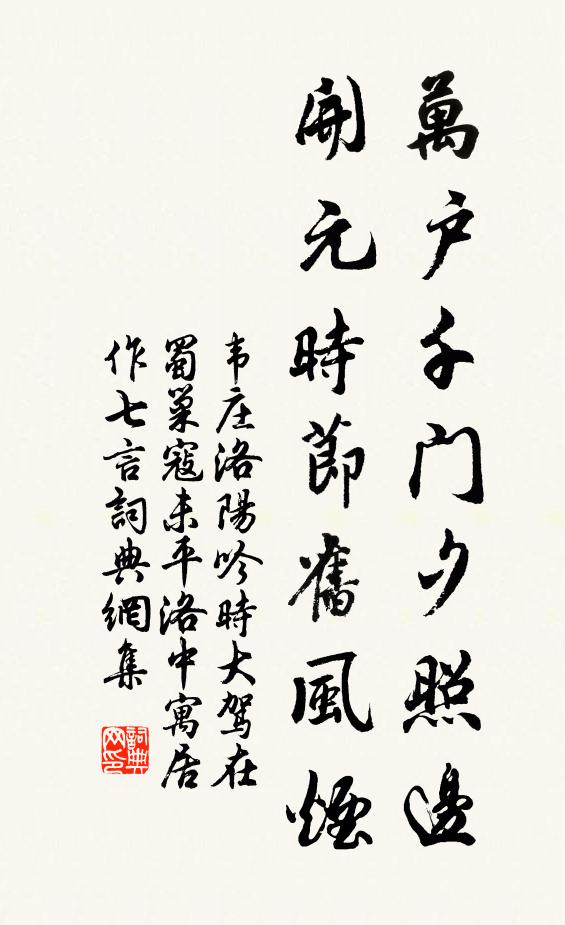 萬户千门夕照邊
開元時節舊風煙
韦庄洛陽吟時大駕在
蜀巢寇未平洛中寓居
作七言詞典網集
詞典
网印